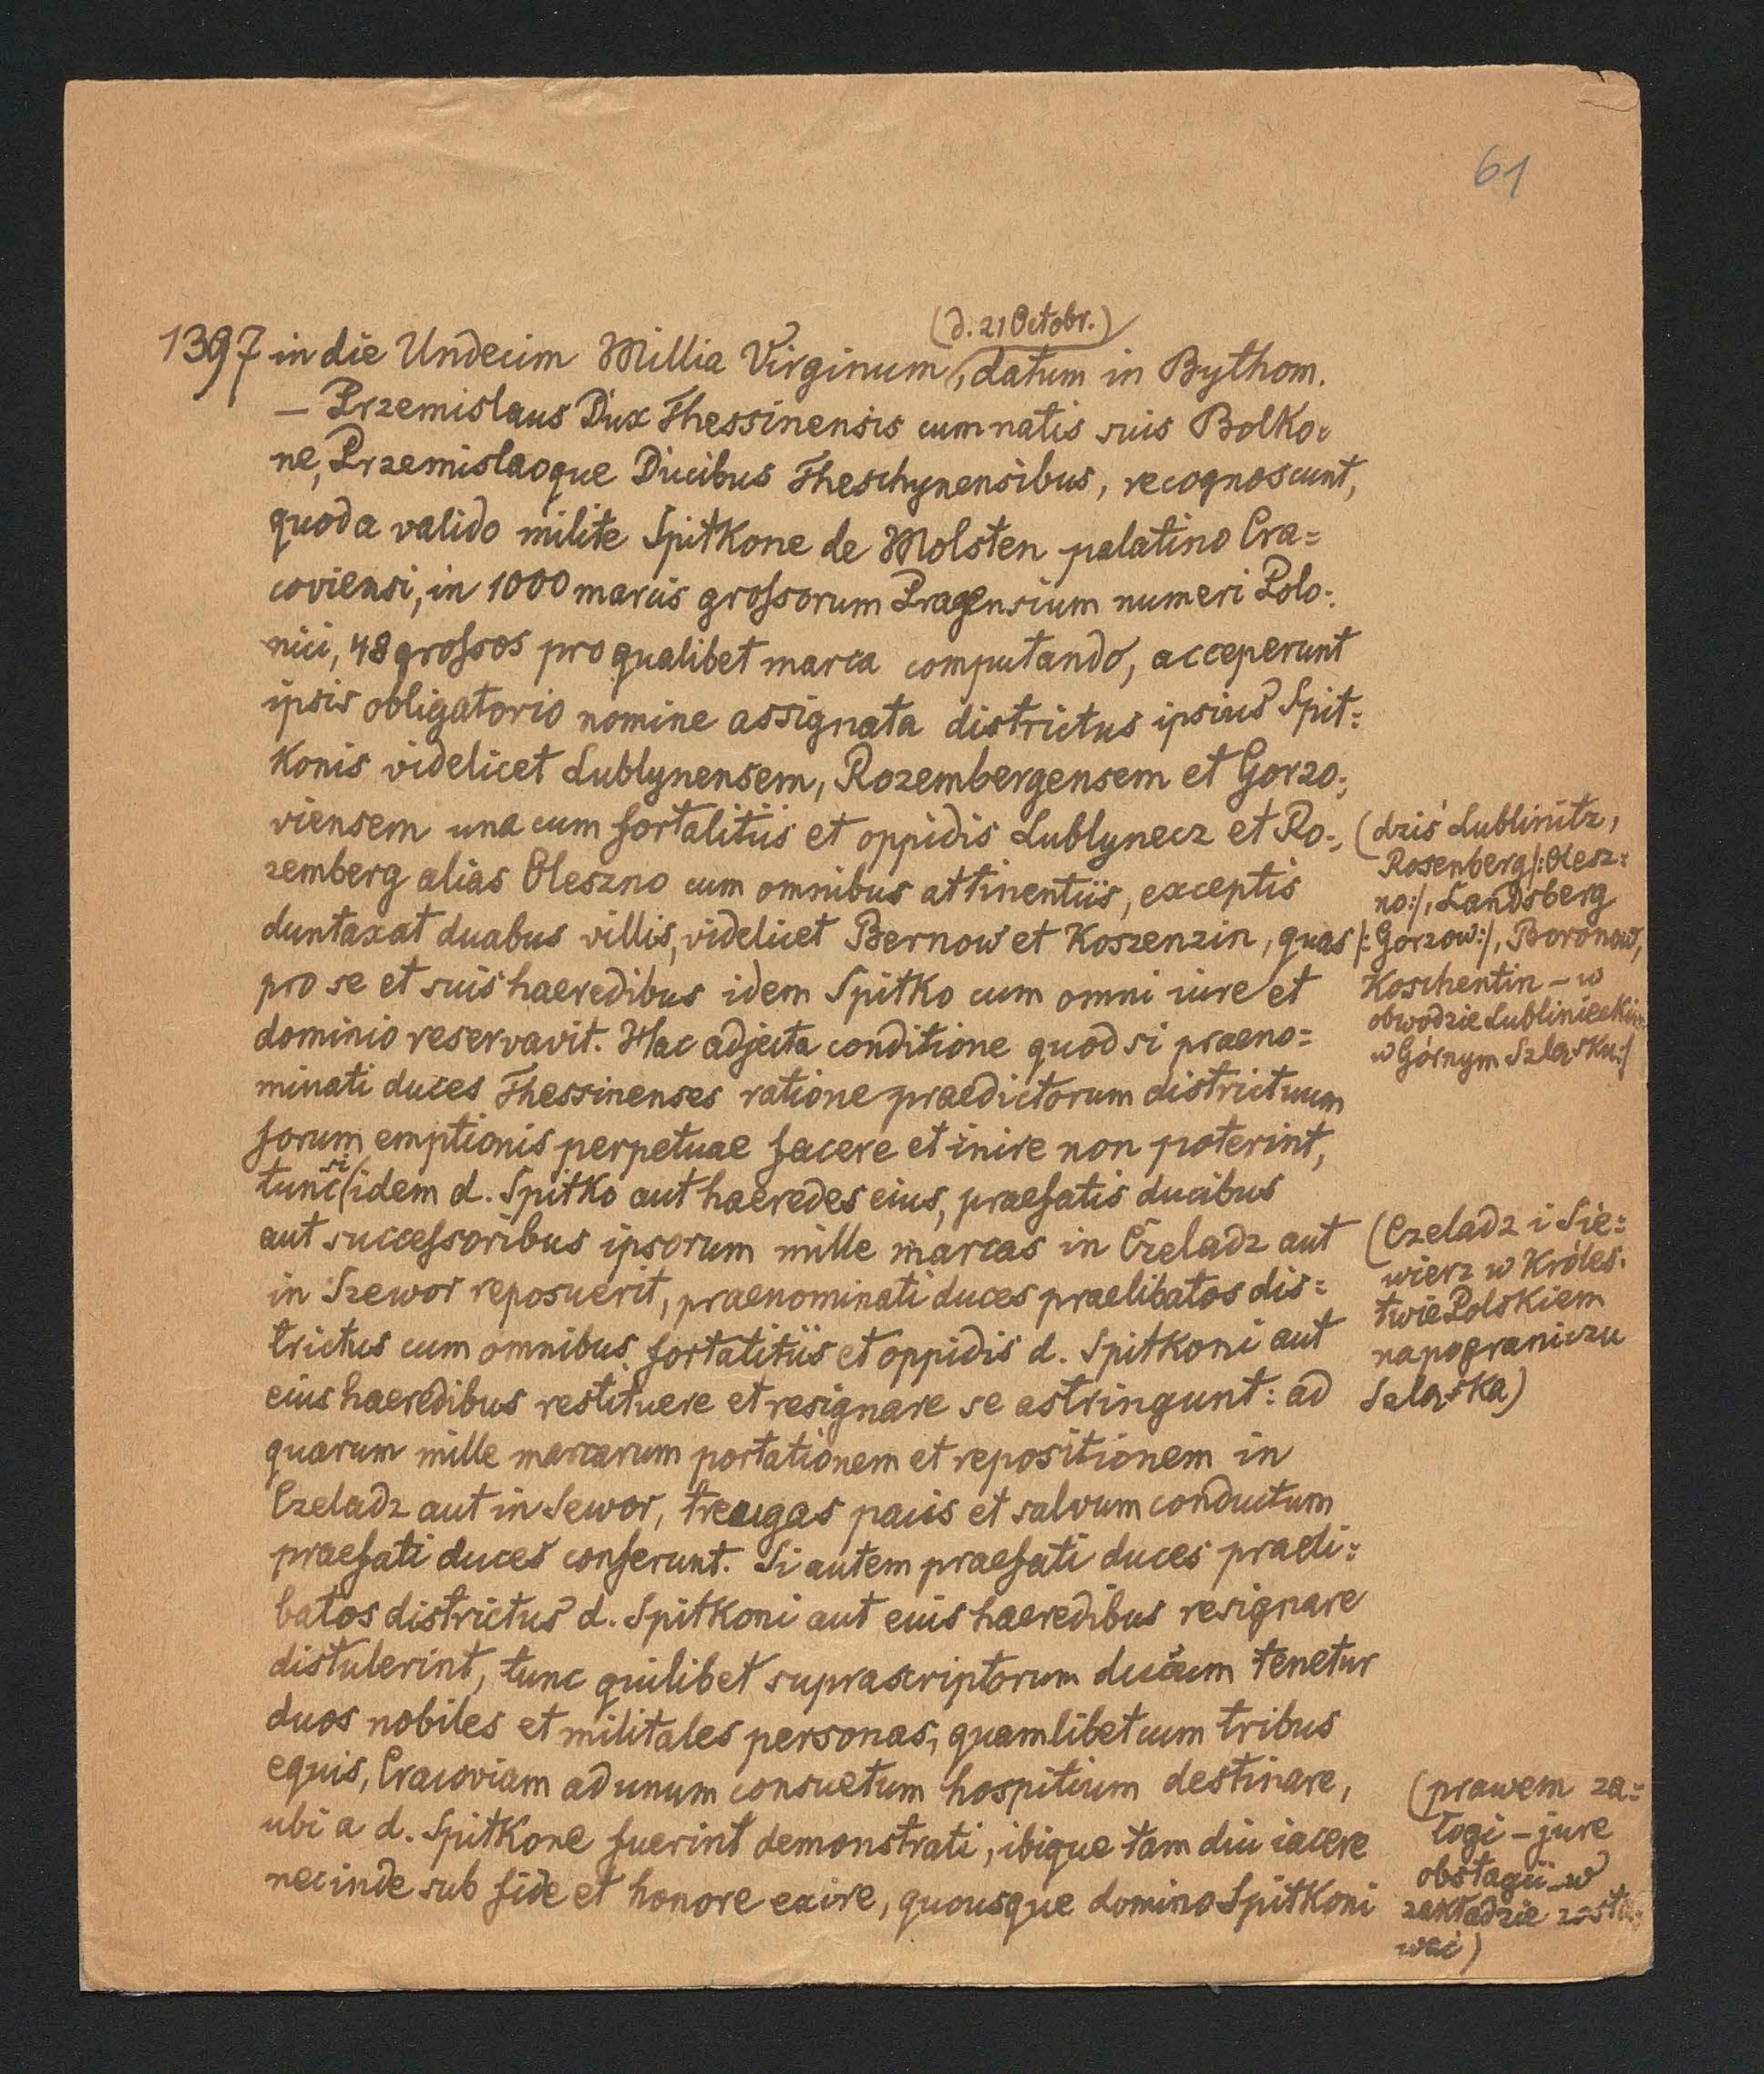 61
(d. 21 Octobr.)
1397 in die Undecim Millia Virginum, datum in Bythom.
— Przemislaus Dux Thessinensis cum natis suis Bolko=
ne, Przemislaoque Ducibus Theschynensibus, recognoscunt,
quod a valido milite Spitkone de Molsten palatino Cra=
coviensi, in 1000 marcis grossorum Pragensium numeri Polo=
nici, 48 grossos pro qualibet marca computando, acceperunt
ipsis obligatorio nomine assignata districtus ipsius Spit=
konis videlicet Lublynensem, Rozembergensem et Gorzo=
viensem una cum fortalitiis et oppidis Lublynecz et Ro=
zemberg alias Oleszno cum omnibus attinentiis, exceptis
duntaxat duabus villis, videlicet Bernow et Koszenzin, quas
pro se et suis haeredibus idem Spitko cum omni iure et
dominio reservavit. Hac adjecta conditione quod si praeno=
minati duces Thessinenses ratione praedictorum districtuum
forum emptionis perpetuae facere et inire non poterint,
tunc si idem d. Spitko aut haeredes eius, praefatis ducibus
aut successoribus ipsorum mille marcas in Czeladz aut
in Szewor reposuerit, praenominati duces praelibatos dis=
trictus cum omnibus fortatitiis et oppidis d. Spitkoni aut
eius haeredibus restituere et resignare se astringunt: ad
quarum mille marcarum portationem et repositionem in
Czeladz aut in Sewor, treugas pacis et salvum conductum
praefati duces conferunt. Si autem praefati duces praeli=
batos districtus d. Spitkoni aut eius haeredibus resignare
distulerint, tunc quilibet suprascriptorum ducum tenetur
duos nobiles et militales personas, quamlibet cum tribus
equis, Cracoviam ad unum consuetum hospitium destinare,
ubi a d. Spitkone fuerint demonstrati, ibique tam diu iacere
nec inde sub fide et honore exire, quousque domino Spitkoni
(dziś Lublinitz,
Rosenberg /:Olesz=
no:/, Landsberg
/:Gorzow:/, Boronow,
Koschentin – w
obwodzie Lublinieckim
w Górnym Szląsku:/
(Czeladz i Sie=
wierz w Króles=
twie Polskiem
na pograniczu
Szląska)
(prawem za=
łogi – jure
obstagii – w
zakładzie zosta=
wać)